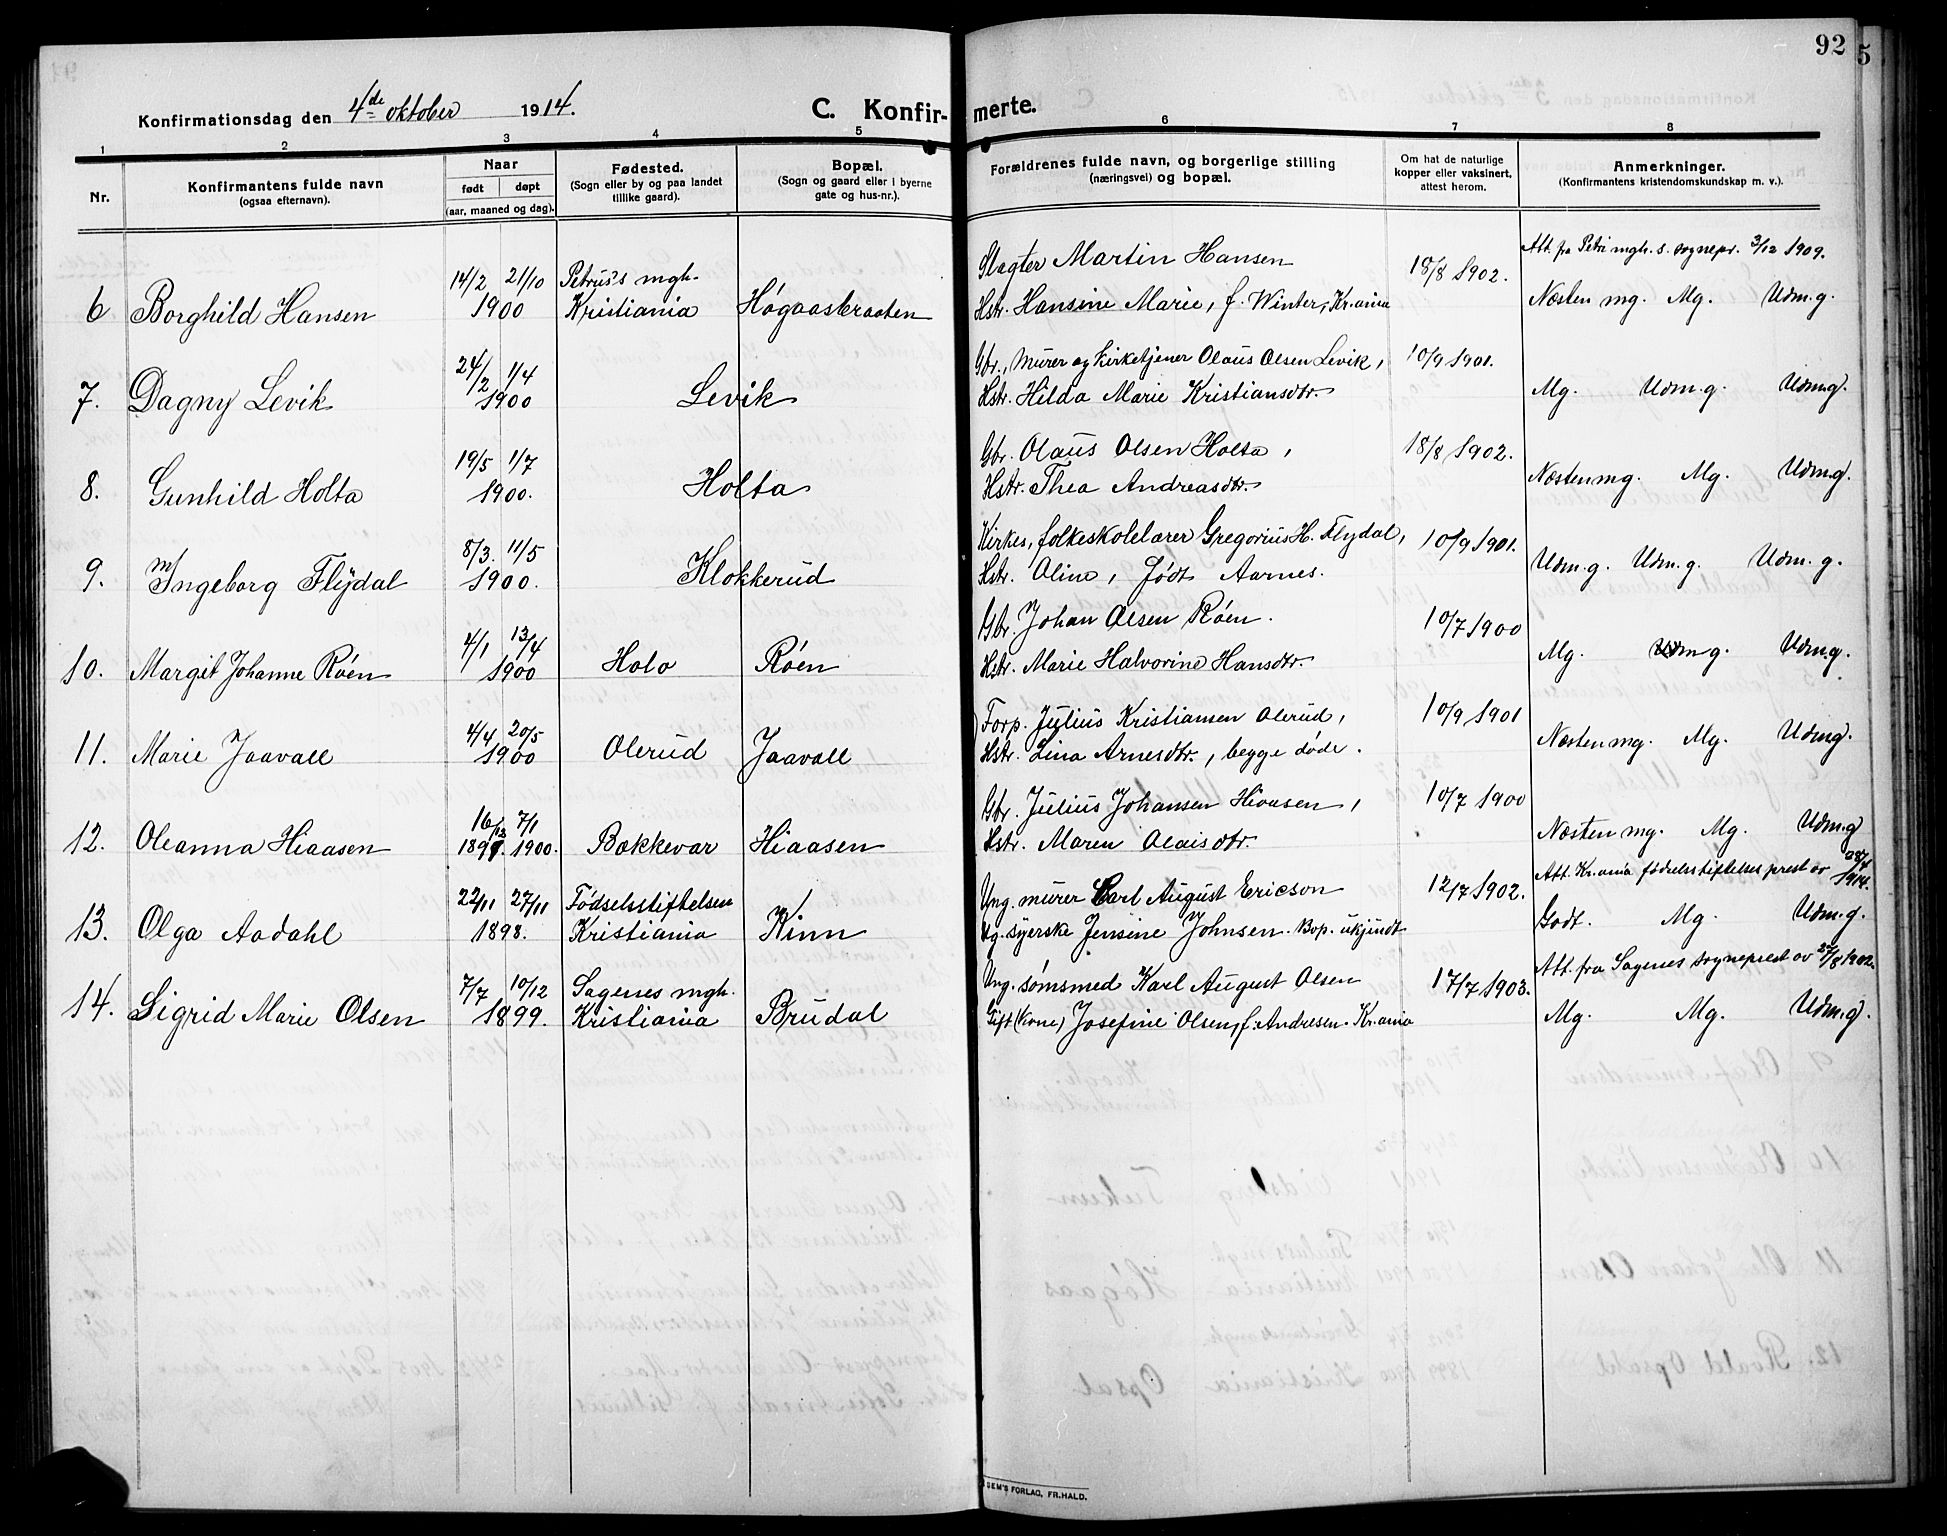 92
5
Konfirmationsdag den 4de oktober 1914.
C. Konfir- merte.
1 2 3 4 5 6 7 8
Nr.
Konfirmantens fulde navn
(ogsaa efternavn).
Naar
født døpt
(aar, maaned og dag).
Fødested.
(Sogn eller by og paa landet
tillike gaard).
Bopæl.
(Sogn og gaard eller i byerne
gate og hus-nr.).
Forældrenes fulde navn, og borgerlige stilling
(næringsvei) og bopæl.
Om hat de naturlige
kopper eller vaksinert,
attest herom.
Anmerkninger.
(Konfirmantens kristendomskundskap m. v.).
14/2 21/10 Petrus's mgh. Slagter Martin Hansen 18/8 1902. Att. fra Petri mgh. s. sognepr. 3/12 1909.
6 Borghild Hansen 1900 Kristiania Høgaasbraaten Hstr. Hansine Marie, f. Winter, Kr.ania Næsten mg. Mg. Udm.g.
24/2 1/4 Gbr., murer og kirketjener Olaus Olsen Levik, 10/9 1901.
7. Dagny Levik 1900 Levik Hstr. Hilda Marie Kristiansdtr. Mg. Udm.g. Udm.g.
19/5 1/7 Gbr. Olaus Olsen Holta, 18/8 1902.
8. Gunhild Holta 1900. Holta Hstr. Thea Andreasdtr. Næsten mg. Mg. Udm.g.
8/3. 11/5 Kirkes., folkeskolelærer Gregorius H. Flydal, 10/9 1901.
9. Ingeborg Flydal 1900. Klokkerud Hstr. Oline, født Aarnes. Udm.g. Udm.g. Udm.g.
4/1 13/4 Gbr. Johan Olsen Røen. 10/7 1900
10. Margit Johanne Røen 1900 Holo Røen Hstr. Marie Halvorine Hansdtr. Mg. Udm.g. Udm.g.
4/4 20/5 Forp. Julius Kristiansen Olerud, 10/9 1901
11. Marie Jaavall 1900 Olerud Jaavall Hstr. Lina Arnesdtr., begge døde. Næsten mg. Mg. Udm.g.
16/12 7/1 Gbr. Julius Johansen Hiaasen, 10/7 1900
12. Oleanna Hiaasen 1899. 1900. Bækkevar Hiaasen Hstr. Maren Olaisdtr. Næsten mg. Mg. Udm.g
22/11 27/11 Fødselsstiftelsen Ung. murer Carl August Ericson 12/7 1902. Att. Kr.ania fødselsstiftelses prest av 28/4 1914.
13. Olga Aadahl 1898. Kristiania Kinn Ug. syerske Jensine Johnsen. Bop. ukjendt Godt. Mg. Udm.g.
7/7 10/12 Sagenes mgh. Ung. sømsmed Karl August Olsen 17/7 1903. Att. fra Sagenes sogneprest av 27/8 1902.
14. Sigrid Marie Olsen 1899. Kristiania Brudal Gift (kone) Josefine Olsen, f. Andresen. Kr.ania Mg. Mg. Udm.g.
SEM'S FORLAG, FR.HALD.